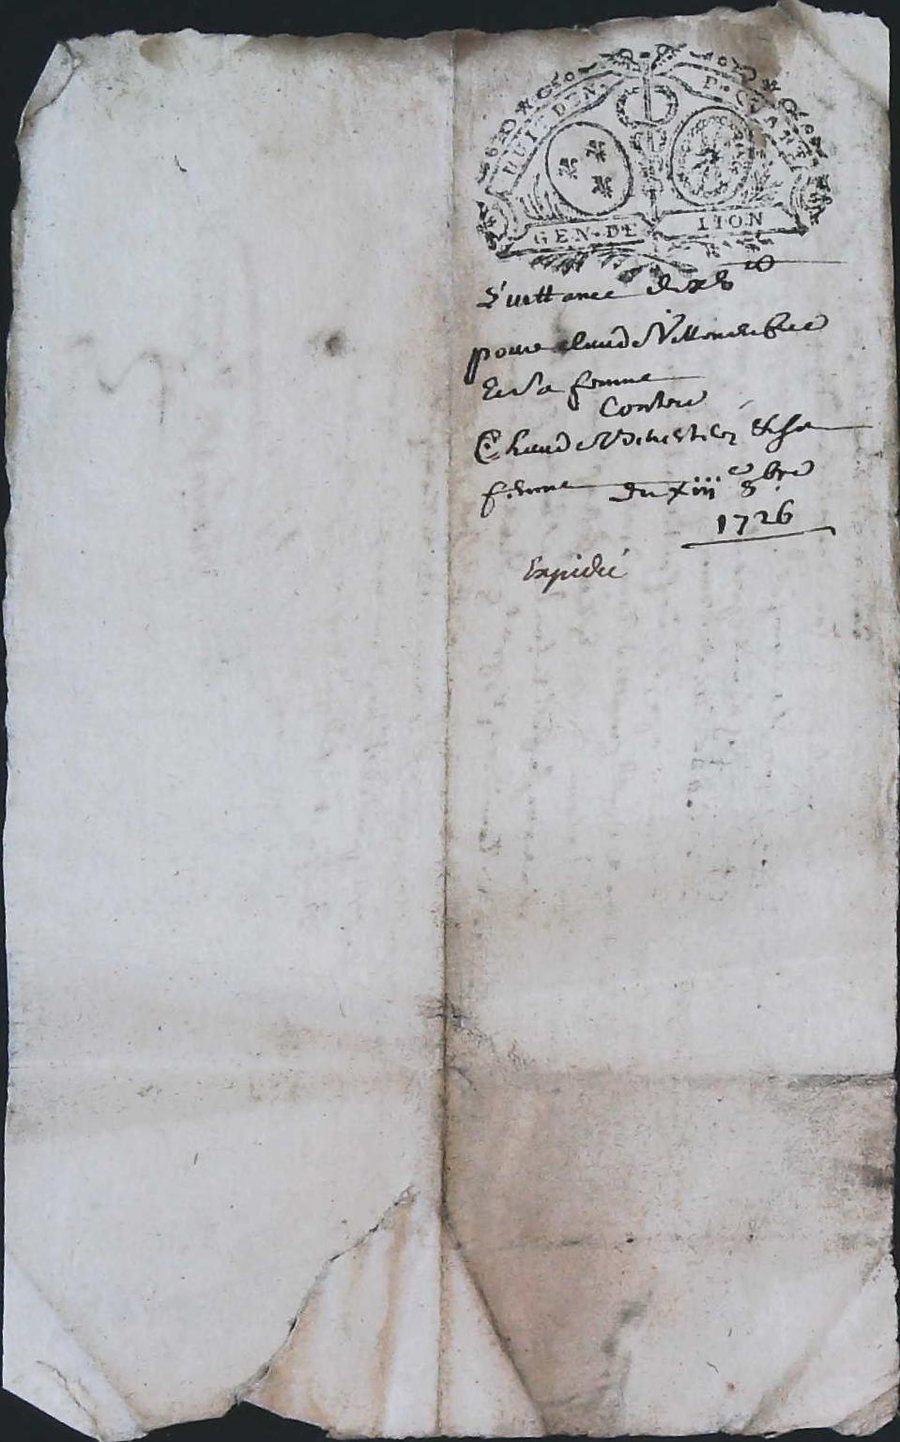 HUIT DEN. P. QUART
GEN. DE LION
Quittance de
pour Claude
Et sa femme
Contre
Claude & sa
femme du xiii^e 8bre
1726
Expedié